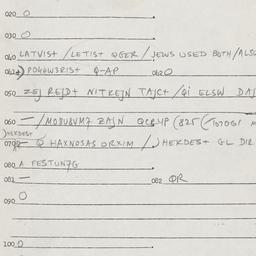 020 O
030 O
040 LATVIST / LETIST QGER / JEWS USED BOTH / ALSO
041 POHHW3RIST Q-AP 042 O
050 ZEJ REJD+ NITKEJN TAJC+ / QI ELSW DAJ
060 — / MOBUBVM7 ZAJN
) HEKDEST
070 — Q HAXNOSAS ORXIM / ) HEKDES+ GL DIR
080 A FESTUN7G
081 — 082 QR
090 O
100 O